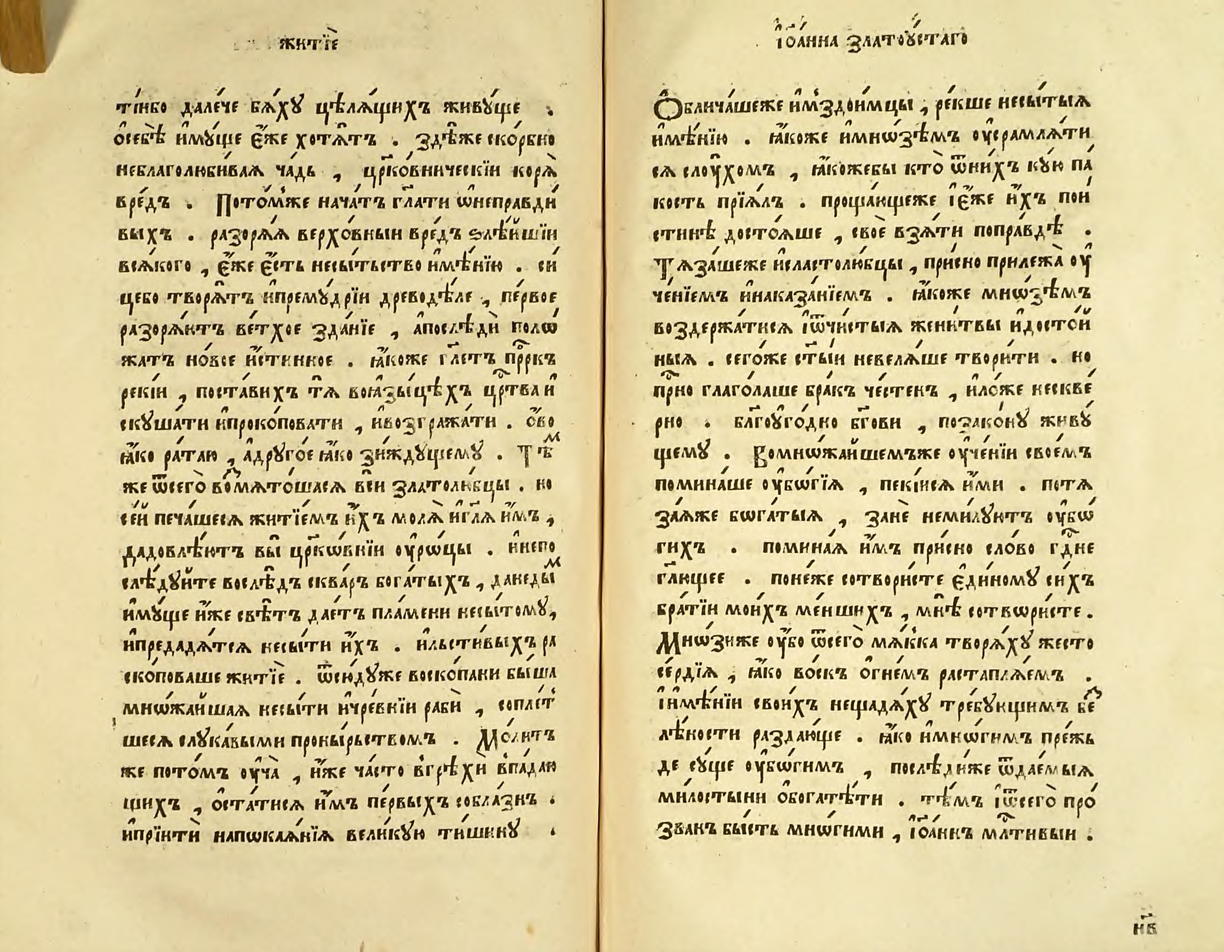 житїѐ
тїи́бо дале́че бѧ́хꙋ цѣлѧ́щихъ живꙋ́ще .
ѻ҆себѣ̀ и҆мꙋ́ще є҆́же хотѧ́тъ . здѣ́же ско́рбно
неблаголюби́ваѧ ча́дь , црко́вническїи корѧ̀
вре́дъ . Пото́мже нача́тъ гл҃ати ѡ҆непра́вди
выхъ . разорѧ́ѧ верхо́вныи вре́дъ ѕлѣ́йшїи
всѧ́кого , є҆́же є҆́сть несы́тьство и҆мѣ́нїю . си
цебо творѧ́тъ и҆премꙋ́дрїи древодѣ́ле , пе́рвое
разорѧ́ютъ ве́тхое зда́нїе , а҆послѣдѝ полѡ
жатъ но́вое и҆́стинное . ꙗ҆́коже гл҃етъ прⷪ҇ркъ
рекїи , поста́вихъ тѧ̀ воꙗ҆зы́цѣхъ црⷭ҇тва и҆
скꙋша́ти и҆прокопова́ти , и҆возгражда́ти . ѻ҆́во
ꙗ҆́ко рата́ю , а҆дрꙋго́е ꙗ҆́ко зи́ждꙋщемꙋ . Тѣⷨ
же ѿсегѡ̀ возмѧто́шасѧ всѝ златолю́бцы . но
се́й печа́шесѧ житїе́мъ и҆́хъ молѧ̀ и҆гл҃ѧ и҆̀мъ ,
дадовлѣ́ютъ вы̀ црко́внїи ѹ҆рѡ́цы . и҆непо
слѣ́дꙋйте вослѣ́дъ сква́р бога́тыхъ , данеды̀ⷨ
и҆мꙋ́ще и҆́же свѣ́тъ дае́тъ пла́мени несы́томꙋ,
и҆предадѧ́тсѧ несы́ти и҆́хъ . и҆льсти́выхъ ра
скопова́ше житїѐ . ѿѡ҆нюдꙋ́же воско́пани бы́ша
мнѡжа́йшаѧ несы́ти и҆чре́внїи рабѝ , соплет
шесѧ слꙋка́выми проны́рьствомъ . Мо́литъ
же пото́мъ ѹ҆ча̀ , и҆́же ча́сто вгрѣхѝ впа́даю
щихъ , ѻ҆ста́тисѧ и҆̀мъ пе́рвыхъ собла́знъ .
и҆прїитѝ напѡкаѧ́нїѧ вели́кꙋю тишинꙋ̀ .
і҆ѻа́нна златоꙋ́стаго
Ѻ҆блича́шеже и҆мздои́мцы , ре́кше несы́тыѧ
и҆мѣ́нїю . ꙗ҆́коже и҆мнѡзѣ́мъ ѹ҆срамлѧ́ти
сѧ слꙋ́хомъ , ꙗ҆́кожебы кто̀ ѿни́хъ кꙋ́ю па́
кость прїѧ́лъ . проща́ющеже і҆є҆́же и҆́хъ пои
стинѣ досто́ѧше , своѐ взѧ́ти попра́вдѣ .
Тѧза́шеже и҆сластолю́бцы , при́сно прилежа̀ ѹ҆
че́нїемъ и҆наказа́нїемъ . ꙗ҆́коже мнѡзѣ́мъ
воздержа́тисѧ і҆ѿчи́стыѧ жени́твы и҆досто́й
ныѧ . сего́же ст҃ы́и невелѧ́ше твори́ти . но
прⷭ҇но глаго́лаше бра́къ че́стенъ , и҆ло́же нескве́
рно . бл҃гоꙋго́дно бг҃ови , позако́нꙋ живꙋ́
щемꙋ . Вомнѡжа́йшемъже ѹ҆че́нїи свое́мъ
помина́ше ѹ҆бѡ́гїѧ , пекі́йсѧ и҆́ми . потѧ
за́ѧже бѡга́тыѧ , занѐ неми́лꙋютъ ѹ҆бѡ́
гихъ . помина́ѧ и҆̀мъ при́сно сло́во гдⷭ҇не
гл҃ющее . поне́же сотвори́сте є҆ди́номꙋ си́хъ
бра́тїи мои́хъ ме́ншихъ , мнѣ̀ сотвѡри́сте .
Мнѡ́зиже ѹ҆́бо ѿсегѡ̀ мѧ́кка творѧ́хꙋ жесто
се́рдїѧ , ꙗ҆́ко во́скъ ѻ҆гне́мъ растаплѧ́емъ .
і҆имѣ́нїи свои́хъ нещадѧ́хꙋ тре́бꙋющимъ беⷥ
лѣ́ности раздаю́ще . ꙗ҆́ко и҆мнѡ́гимъ пре́жь
де сꙋ́ще ѹ҆бѡ́гимъ , послѣди́же ѿдае́мыѧ
ми́лостыни ѻ҆богатѣ́ти . тѣ́мъ і҆ѿсегѡ̀ про
зва́нъ бы́сть мнѡ́гими , і҆ѻа́ннъ млⷭ҇тивыи .
н҃в